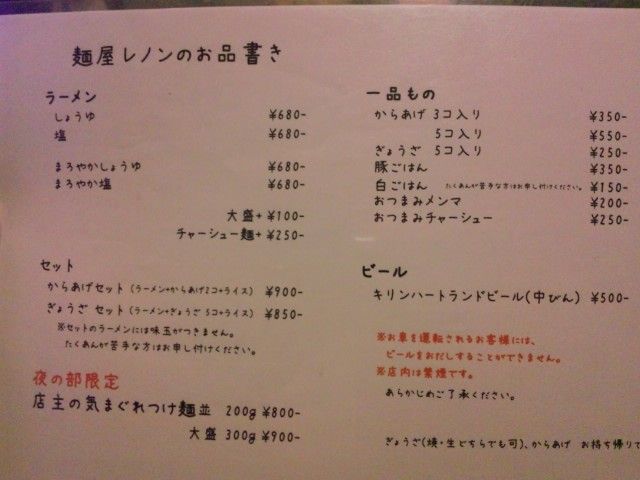 麺屋レノンのお品書き
ラーメン
しょうゆ ¥680-
塩 ¥680-
まろやかしょうゆ ¥680-
まろやか塩 ¥680-
大盛+ ¥100-
チャーシュー麺+ ¥250-
セット
からあげセット (ラーメン+からあげ2コ+ライス) ¥900-
ぎょうざセット (ラーメン+ぎょうざ5コ+ライス) ¥850-
※セットのラーメンには味玉がつきません。
たくあんが苦手な方はお申し付けください。
夜の部限定
店主の気まぐれつけ麺並 200g ¥800-
大盛 300g ¥900-
一品もの
からあげ 3コ入り ¥350-
5コ入り ¥550-
ぎょうざ 5コ入り ¥250-
豚ごはん ¥350-
白ごはん たくあんが苦手な方はお申し付けください。 ¥150-
おつまみメンマ ¥200-
おつまみチャーシュー ¥250-
ビール
キリンハートランドビール(中びん) ¥500-
※お車を運転されるお客様には、
ビールをおだしすることができません。
※店内は禁煙です。
あらかじめご了承ください。
ぎょうざ(焼・生どちらでも可)、からあげ お持ち帰りで